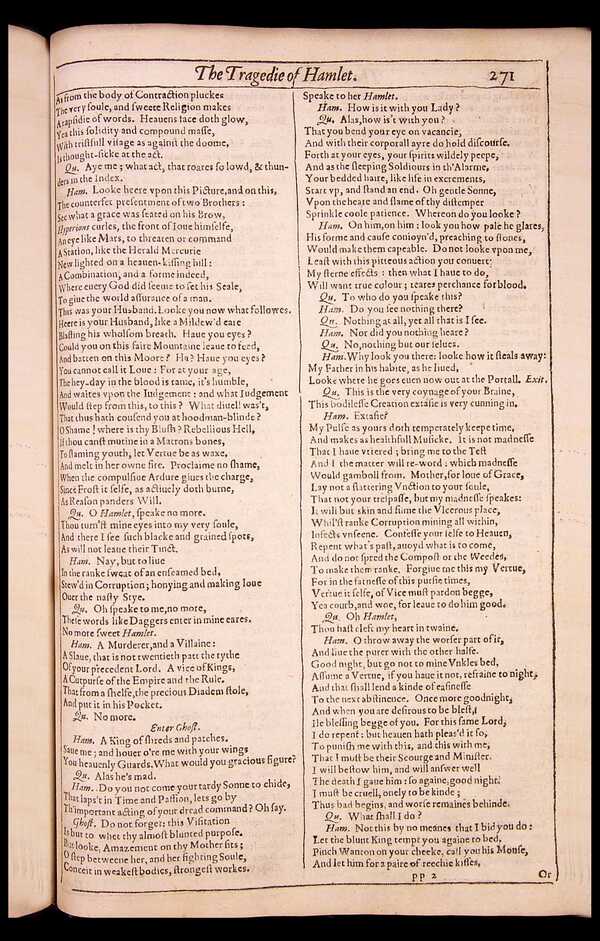 The Tragedie of Hamlet. 271
As from the body of Contraction pluckes
The very soule, and sweete Religion makes
A rapsidie of words. Heauens face doth glow,
Yea this solidity and compound masse,
With tristfull visage as against the doome,
Is thought-sicke at the act.
Qu. Aye me; what act, that roares so lowd, & thun-
ders in the Index.
Ham. Looke heere vpon this Picture, and on this,
The counterfet presentment of two Brothers:
See what a grace was seated on his Brow,
Hyperions curles, the front of Ioue himselfe,
An eye like Mars, to threaten or command
A Station, like the Herald Mercurie
New lighted on a heauen-kissing hill:
A Combination, and a forme indeed,
Where euery God did seeme to set his Seale,
To giue the world assurance of a man.
This was your Husband. Looke you now what followes.
Heere is your Husband, like a Mildew'd eare
Blasting his wholsom breath. Haue you eyes?
Could you on this faire Mountaine leaue to feed,
And batten on this Moore? Ha? Haue you eyes?
You cannot call it Loue: For at your age,
The hey-day in the blood is tame, it's humble,
And waites vpon the Iudgement: and what Iudgement
Would step from this, to this? What diuell was't,
That thus hath cousend you at hoodman-blinde?
O Shame! where is thy Blush? Rebellious Hell,
If thou canst mutine in a Matrons bones,
To flaming youth, let Vertue be as waxe,
And melt in her owne fire. Proclaime no shame,
When the compulsiue Ardure giues the charge,
Since Frost it selfe, as actiuely doth burne,
As Reason panders Will.
Qu. O Hamlet, speake no more.
Thou turn'st mine eyes into my very soule,
And there I see such blacke and grained spots,
As will not leaue their Tinct.
Ham. Nay, but to liue
In the ranke sweat of an enseamed bed,
Stew'd in Corruption; honying and making loue
Ouer the nasty Stye.
Qu. Oh speake to me, no more,
These words like Daggers enter in mine eares.
No more sweet Hamlet.
Ham. A Murderer, and a Villaine:
A Slaue, that is not twentieth patt the tythe
Of your precedent Lord. A vice of Kings,
A Cutpurse of the Empire and the Rule.
That from a shelfe, the precious Diadem stole,
And put it in his Pocket.
Qu. No more.
Enter Ghost.
Ham. A King of shreds and patches.
Saue me; and houer o're me with your wings
You heauenly Guards. What would you gracious figure?
Qu. Alas he's mad.
Ham. Do you not come your tardy Sonne to chide,
That laps't in Time and Passion, lets go by
Th'important acting of your dread command? Oh say.
Ghost. Do not forget: this Visitation
Is but to whet thy almost blunted purpose.
But looke, Amazement on thy Mother sits;
O step betweene her, and her fighting Soule,
Conceit in weakest bodies, strongest workes.
Speake to her Hamlet.
Ham. How is it with you Lady?
Qu. Alas, how is't with you?
That you bend your eye on vacancie,
And with their corporall ayre do hold discourse.
Forth at your eyes, your spirits wildely peepe,
And as the sleeping Soldiours in th'Alarme,
Your bedded haire, like life in excrements,
Start vp, and stand an end. Oh gentle Sonne,
Vpon the heate and flame of thy distemper
Sprinkle coole patience. Whereon do you looke?
Ham. On him, on him: look you how pale he glares,
His forme and cause conioyn'd, preaching to stones,
Would make them capeable. Do not looke vpon me,
Least with this pitteous action you conuert
My sterne effects: then what I haue to do,
Will want true colour; teares perchance for blood.
Qu. To who do you speake this?
Ham. Do you see nothing there?
Qu. Nothing at all, yet all that is I see.
Ham. Nor did you nothing heare?
Qu. No, nothing but our selues.
Ham. Why look you there: looke how it steals away:
My Father in his habite, as he liued,
Looke where he goes euen now out at the Portall. Exit.
Qu. This is the very coynage of your Braine,
This bodilesse Creation extasie is very cunning in.
Ham. Extasie?
My Pulse as yours doth temperately keepe time,
And makes as healthfull Musicke. It is not madnesse
That I haue vttered; bring me to the Test
And I the matter will re-word: which madnesse
Would gamboll from. Mother, for loue of Grace,
Lay not a flattering Vnction to your soule,
That not your trespasse, but my madnesse speakes:
It will but skin and filme the Vlcerous place,
Whil'st ranke Corruption mining all within,
Infects vnseene. Confesse your selfe to Heauen,
Repent what's past, auoyd what is to come,
And do not spred the Compost or the Weedes,
To make them ranke. Forgiue me this my Vertue,
For in the fatnesse of this pursie times,
Vertue it selfe, of Vice must pardon begge,
Yea courb, and woe, for leaue to do him good.
Qu. Oh Hamlet,
Thou hast cleft my heart in twaine.
Ham. O throw away the worser part of it,
And liue the purer with the other halfe.
Good night, but go not to mine Vnkles bed,
Assume a Vertue, if you haue it not, refraine to night,
And that shall lend a kinde of easinesse
To the next abstinence. Once more goodnight,
And when you are desirous to be blest,
Ile blessing begge of you. For this same Lord,
I do repent: but heauen hath pleas'd it so,
To punish me with this, and this with me,
That I must be their Scourge and Minister.
I will bestow him, and will answer well
The death I gaue him: so againe, good night.
I must be cruell, onely to be kinde;
Thus bad begins, and worse remaines behinde.
Qu. What shall I do?
Ham. Not this by no meanes that I bid you do:
Let the blunt King tempt you againe to bed,
Pinch Wanton on your cheeke, call you his Mouse,
And let him for a paire of reechie kisses,
pp 2 Or